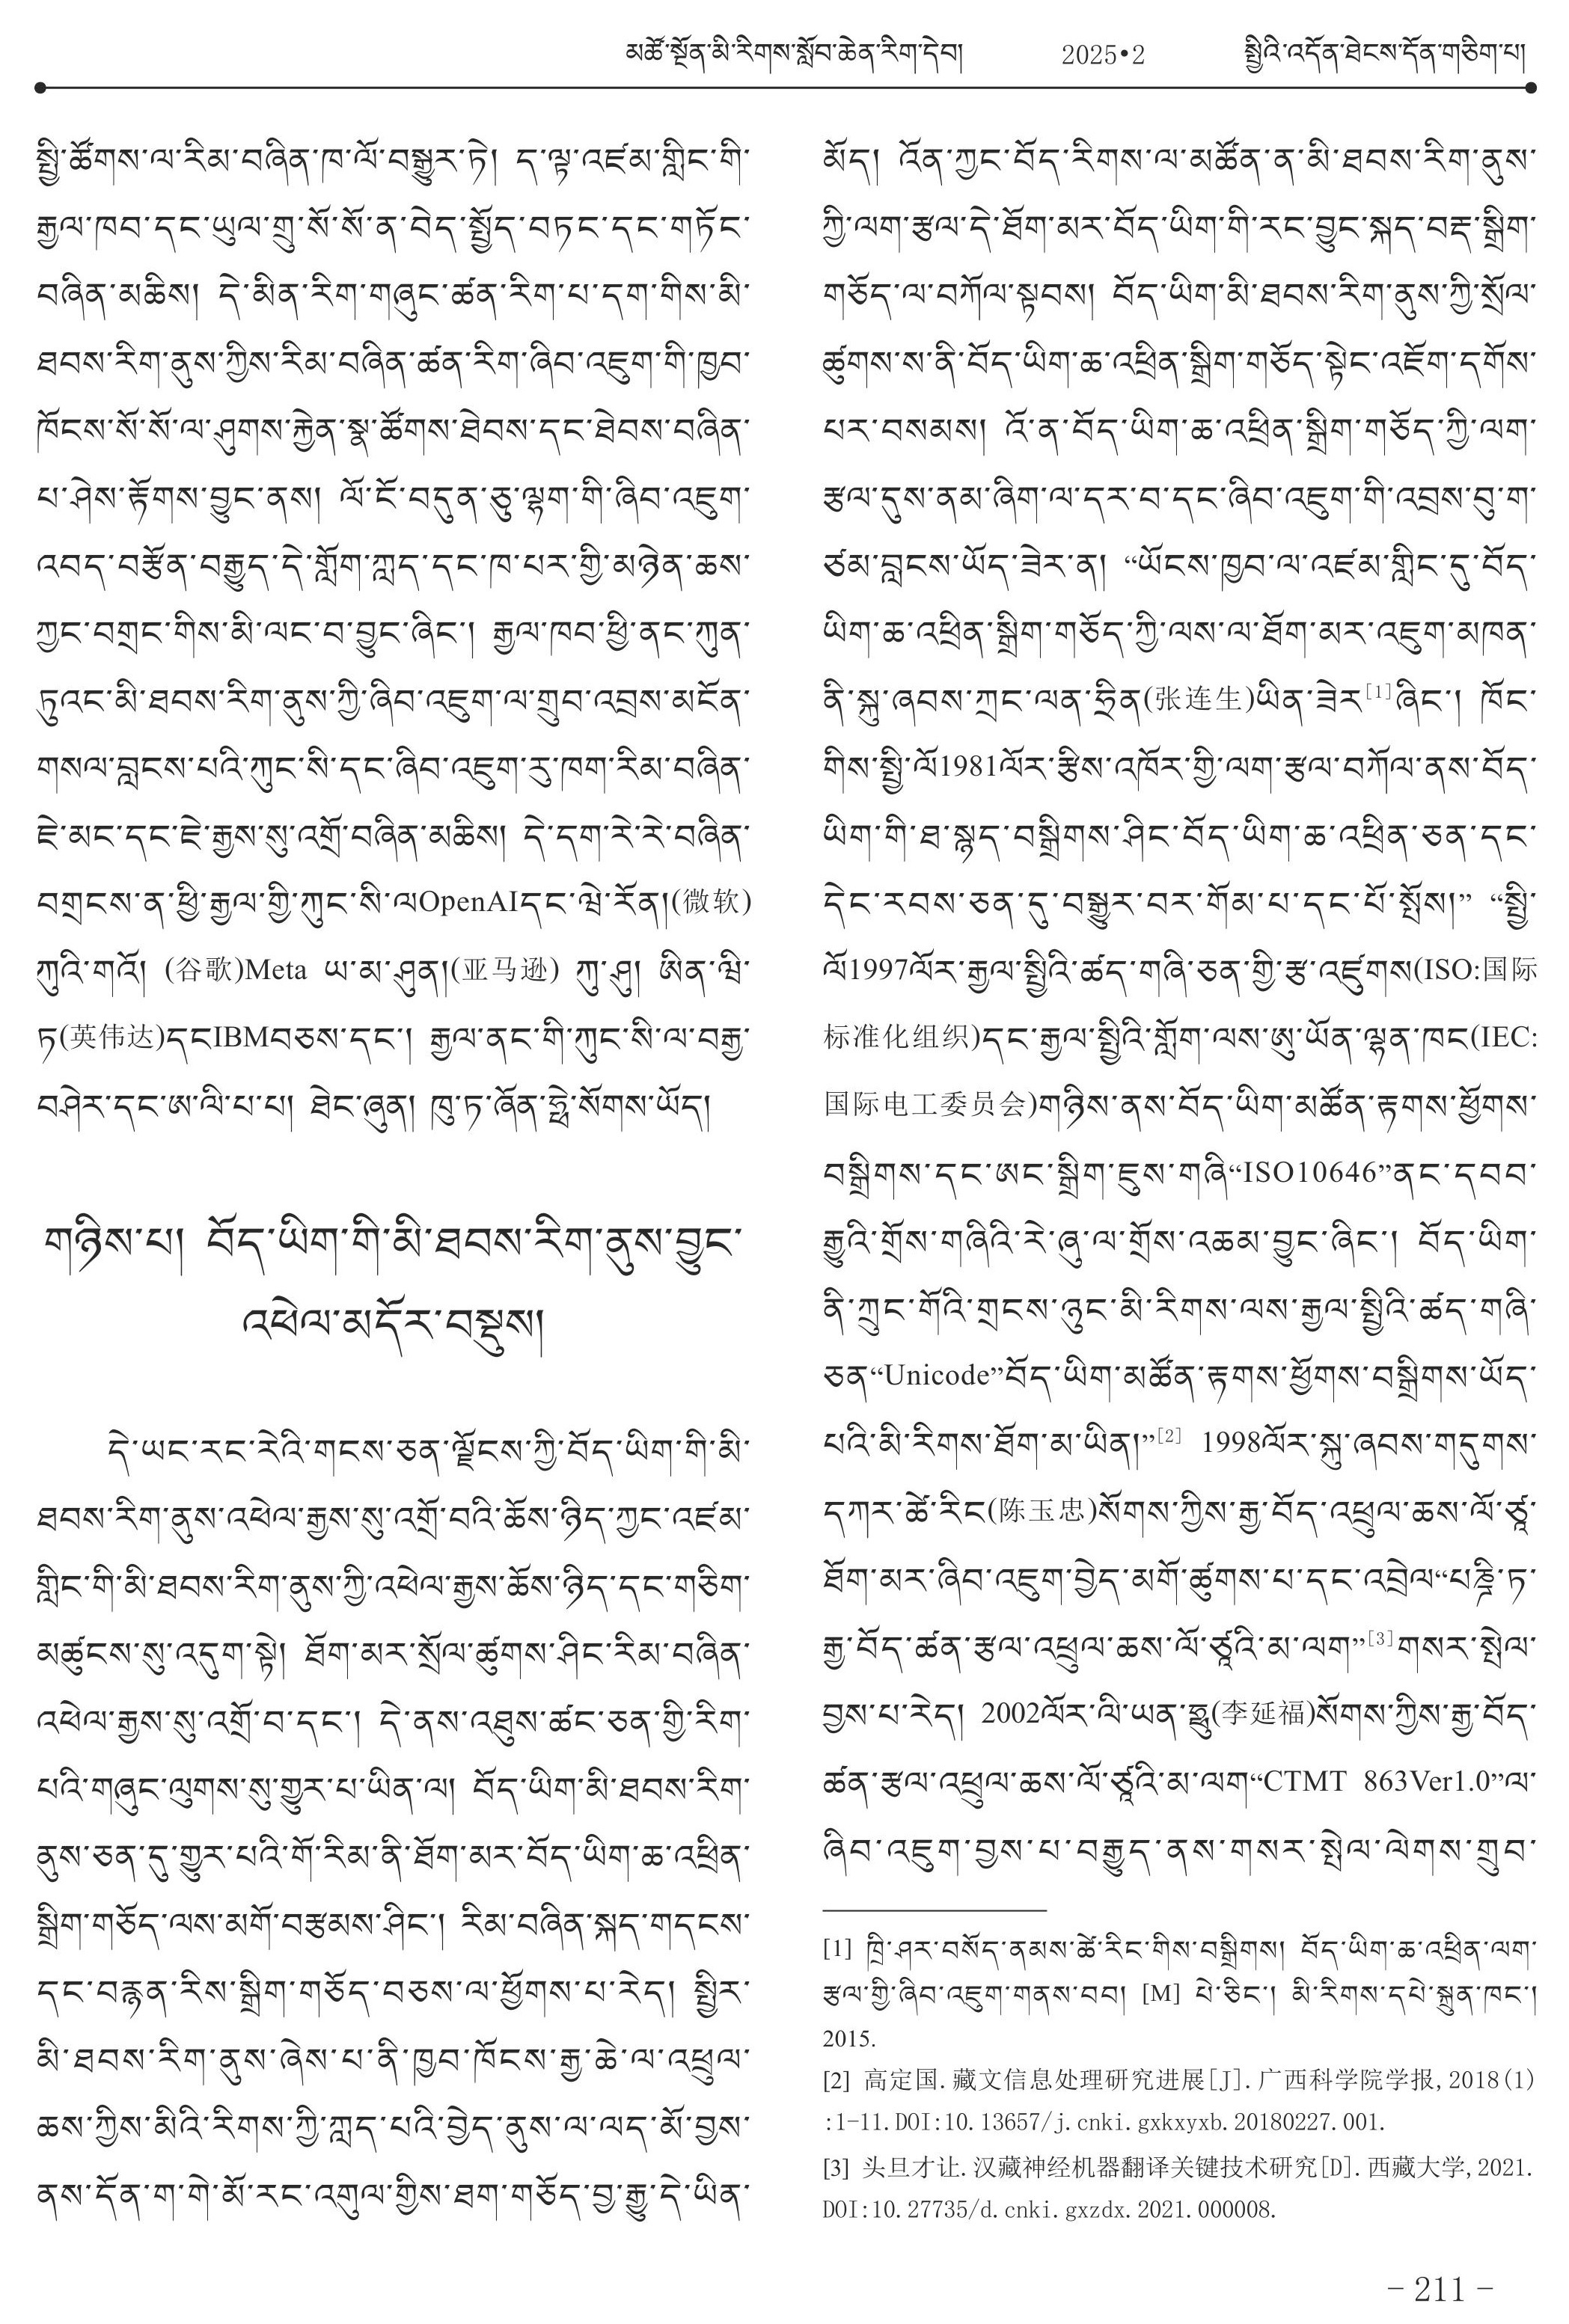 མཚོ་སྔོན་མི་རིགས་སློབ་ཆེན་རིག་དེབ། 2025•2 སྤྱིའི་འདོན་ཐེངས་དོན་གཅིག་པ།
སྤྱི་ཚོགས་ལ་རིམ་བཞིན་ཁ་ལོ་བསྒྱུར་ཏེ། ད་ལྟ་འཛམ་གླིང་གི་
རྒྱལ་ཁབ་དང་ཡུལ་གྲུ་སོ་སོ་ན་བེད་སྤྱོད་བཏང་དང་གཏོང་
བཞིན་མཆིས། དེ་མིན་རིག་གཞུང་ཚན་རིག་པ་དག་གིས་མི་
ཐབས་རིག་ནུས་ཀྱིས་རིམ་བཞིན་ཚན་རིག་ཞིབ་འཇུག་གི་ཁྱབ་
ཁོངས་སོ་སོ་ལ་ཤུགས་རྐྱེན་སྣ་ཚོགས་ཐེབས་དང་ཐེབས་བཞིན་
པ་ཤེས་རྟོགས་བྱུང་ནས། ལོ་ངོ་བདུན་ཅུ་ལྷག་གི་ཞིབ་འཇུག་
འབད་བརྩོན་བརྒྱུད་དེ་གློག་ཀླད་དང་ཁ་པར་གྱི་མཉེན་ཆས་
ཀྱང་བགྲང་གིས་མི་ལང་བ་བྱུང་ཞིང་། རྒྱལ་ཁབ་ཕྱི་ནང་ཀུན་
ཏུའང་མི་ཐབས་རིག་ནུས་ཀྱི་ཞིབ་འཇུག་ལ་གྲུབ་འབྲས་མངོན་
གསལ་བླངས་པའི་ཀུང་སི་དང་ཞིབ་འཇུག་རུ་ཁག་རིམ་བཞིན་
ཇེ་མང་དང་ཇེ་རྒྱས་སུ་འགྲོ་བཞིན་མཆིས། དེ་དག་རེ་རེ་བཞིན་
བགྲངས་ན་ཕྱི་རྒྱལ་གྱི་ཀུང་སི་ལOpenAIདང་ཝེ་རོན།(微软)
ཀུའི་གའོ། (谷歌)Meta ཡ་མ་ཤུན།(亚马逊) ཀུ་ཤུ། ཨིན་ཝི་
ཏ(英伟达)དངIBMབཅས་དང་། རྒྱལ་ནང་གི་ཀུང་སི་ལ་བརྒྱ་
བཤེར་དང་ཨ་ལི་པ་པ། ཐེང་ཞུན། ཁུ་ཏ་ཞོན་ཧྥེ་སོགས་ཡོད།
གཉིས་པ། བོད་ཡིག་གི་མི་ཐབས་རིག་ནུས་བྱུང་
འཕེལ་མདོར་བསྡུས།
དེ་ཡང་རང་རེའི་གངས་ཅན་ལྗོངས་ཀྱི་བོད་ཡིག་གི་མི་
ཐབས་རིག་ནུས་འཕེལ་རྒྱས་སུ་འགྲོ་བའི་ཆོས་ཉིད་ཀྱང་འཛམ་
གླིང་གི་མི་ཐབས་རིག་ནུས་ཀྱི་འཕེལ་རྒྱས་ཆོས་ཉིད་དང་གཅིག་
མཚུངས་སུ་འདུག་སྟེ། ཐོག་མར་སྲོལ་ཚུགས་ཤིང་རིམ་བཞིན་
འཕེལ་རྒྱས་སུ་འགྲོ་བ་དང་། དེ་ནས་འཐུས་ཚང་ཅན་གྱི་རིག་
པའི་གཞུང་ལུགས་སུ་གྱུར་པ་ཡིན་ལ། བོད་ཡིག་མི་ཐབས་རིག་
ནུས་ཅན་དུ་གྱུར་པའི་གོ་རིམ་ནི་ཐོག་མར་བོད་ཡིག་ཆ་འཕྲིན་
སྒྲིག་གཅོད་ལས་མགོ་བརྩམས་ཤིང་། རིམ་བཞིན་སྐད་གདངས་
དང་བརྙན་རིས་སྒྲིག་གཅོད་བཅས་ལ་ཕྱོགས་པ་རེད། སྤྱིར་
མི་ཐབས་རིག་ནུས་ཞེས་པ་ནི་ཁྱབ་ཁོངས་རྒྱ་ཆེ་ལ་འཕྲུལ་
ཆས་ཀྱིས་མིའི་རིགས་ཀྱི་ཀླད་པའི་བྱེད་ནུས་ལ་ལད་མོ་བྱས་
ནས་དོན་ག་གེ་མོ་རང་འགུལ་གྱིས་ཐག་གཅོད་བྱ་རྒྱུ་དེ་ཡིན་
མོད། འོན་ཀྱང་བོད་རིགས་ལ་མཚོན་ན་མི་ཐབས་རིག་ནུས་
ཀྱི་ལག་རྩལ་དེ་ཐོག་མར་བོད་ཡིག་གི་རང་བྱུང་སྐད་བརྡ་སྒྲིག་
གཅོད་ལ་བཀོལ་སྟབས། བོད་ཡིག་མི་ཐབས་རིག་ནུས་ཀྱི་སྲོལ་
ཚུགས་ས་ནི་བོད་ཡིག་ཆ་འཕྲིན་སྒྲིག་གཅོད་སྟེང་འཇོག་དགོས་
པར་བསམས། འོ་ན་བོད་ཡིག་ཆ་འཕྲིན་སྒྲིག་གཅོད་ཀྱི་ལག་
རྩལ་དུས་ནམ་ཞིག་ལ་དར་བ་དང་ཞིབ་འཇུག་གི་འབྲས་བུ་ག་
ཙམ་བླངས་ཡོད་ཟེར་ན། “ཡོངས་ཁྱབ་ལ་འཛམ་གླིང་དུ་བོད་
ཡིག་ཆ་འཕྲིན་སྒྲིག་གཅོད་ཀྱི་ལས་ལ་ཐོག་མར་འཇུག་མཁན་
ནི་སྐུ་ཞབས་ཀྲང་ལན་ཧྲིན(张连生)ཡིན་ཟེར[1]ཞིང་། ཁོང་
གིས་སྤྱི་ལོ1981ལོར་རྩིས་འཁོར་གྱི་ལག་རྩལ་བཀོལ་ནས་བོད་
ཡིག་གི་ཐ་སྙད་བསྒྲིགས་ཤིང་བོད་ཡིག་ཆ་འཕྲིན་ཅན་དང་
དེང་རབས་ཅན་དུ་བསྒྱུར་བར་གོམ་པ་དང་པོ་སྤོས།” “སྤྱི་
ལོ1997ལོར་རྒྱལ་སྤྱིའི་ཚད་གཞི་ཅན་གྱི་རྩ་འཛུགས(ISO:国际
标准化组织)དང་རྒྱལ་སྤྱིའི་གློག་ལས་ཨུ་ཡོན་ལྷན་ཁང(IEC:
国际电工委员会)གཉིས་ནས་བོད་ཡིག་མཚོན་རྟགས་ཕྱོགས་
བསྒྲིགས་དང་ཨང་སྒྲིག་ཇུས་གཞི“ISO10646”ནང་དབབ་
རྒྱུའི་གྲོས་གཞིའི་རེ་ཞུ་ལ་གྲོས་འཆམ་བྱུང་ཞིང་། བོད་ཡིག་
ནི་ཀྲུང་གོའི་གྲངས་ཉུང་མི་རིགས་ལས་རྒྱལ་སྤྱིའི་ཚད་གཞི་
ཅན“Unicode”བོད་ཡིག་མཚོན་རྟགས་ཕྱོགས་བསྒྲིགས་ཡོད་
པའི་མི་རིགས་ཐོག་མ་ཡིན།”[2] 1998ལོར་སྐུ་ཞབས་གདུགས་
དཀར་ཚེ་རིང(陈玉忠)སོགས་ཀྱིས་རྒྱ་བོད་འཕྲུལ་ཆས་ལོ་ཙཱ་
ཐོག་མར་ཞིབ་འཇུག་བྱེད་མགོ་ཚུགས་པ་དང་འབྲེལ“པཎྜི་ཏ་
རྒྱ་བོད་ཚན་རྩལ་འཕྲུལ་ཆས་ལོ་ཙཱའི་མ་ལག”[3]གསར་སྤེལ་
བྱས་པ་རེད། 2002ལོར་ལི་ཡན་ཧྥུ(李延福)སོགས་ཀྱིས་རྒྱ་བོད་
ཚན་རྩལ་འཕྲུལ་ཆས་ལོ་ཙཱའི་མ་ལག“CTMT 863Ver1.0”ལ་
ཞིབ་འཇུག་བྱས་པ་བརྒྱུད་ནས་གསར་སྤེལ་ལེགས་གྲུབ་
[1] ཁྲི་ཤར་བསོད་ནམས་ཚེ་རིང་གིས་བསྒྲིགས། བོད་ཡིག་ཆ་འཕྲིན་ལག་
རྩལ་གྱི་ཞིབ་འཇུག་གནས་བབ། [M] པེ་ཅིང་། མི་རིགས་དཔེ་སྐྲུན་ཁང་།
2015.
[2] 高定国.藏文信息处理研究进展[J].广西科学院学报,2018(1)
:1-11.DOI:10.13657/j.cnki.gxkxyxb.20180227.001.
[3] 头旦才让.汉藏神经机器翻译关键技术研究[D].西藏大学,2021.
DOI:10.27735/d.cnki.gxzdx.2021.000008.
- 211 -